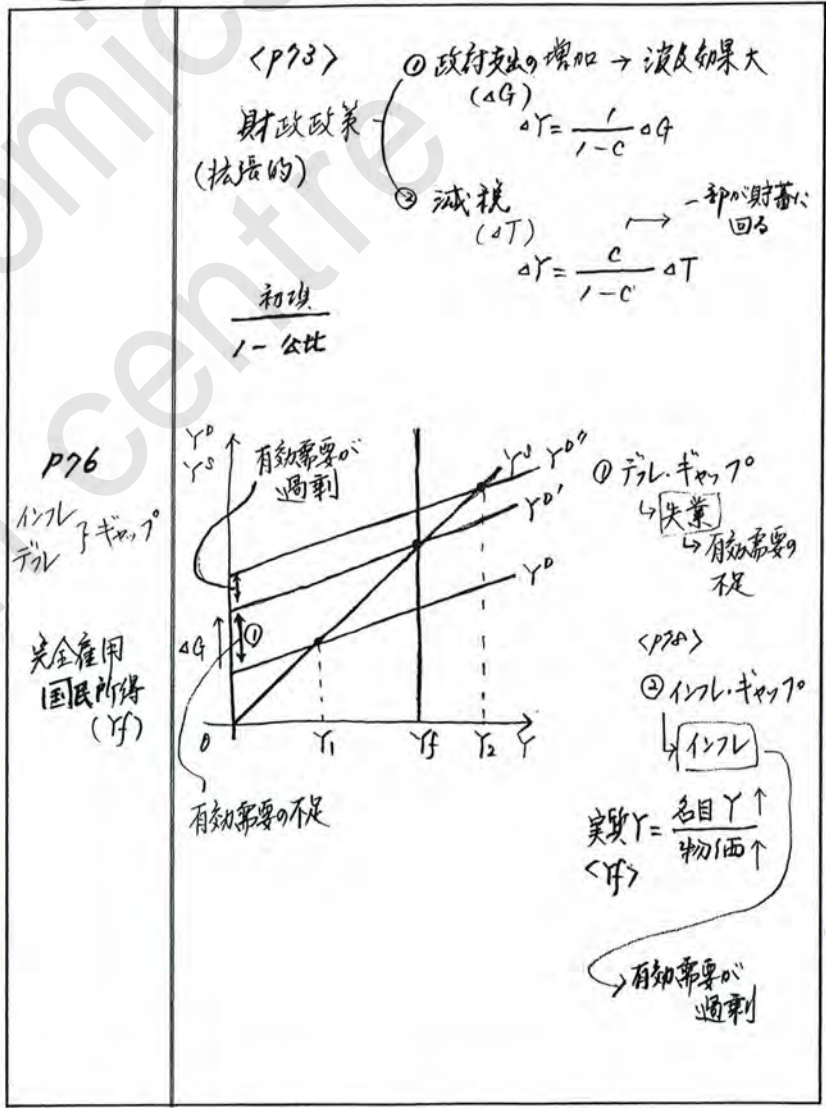 <P73>
① 政府支出の増加 → 波及効果大
(ΔG)
ΔY = 1/(1-C) ΔG
財政政策
(拡張的)
② 減税
(ΔT)
→ 一部が貯蓄に
回る
ΔY = C/(1-C) ΔT
初項
1 - 公比
P76
インフレ
デフレ
} ギャップ
完全雇用
国民所得
(Yf)
Y^D
Y^S
有効需要が
過剰
Y^S
Y^D''
Y^D'
Y^D
ΔG
①
0
Y1
Yf
Y2
Y
有効需要の不足
① デフレ・ギャップ
↳ 失業
↳ 有効需要の
不足
<P78>
② インフレ・ギャップ
↳ インフレ
実質Y = 名目Y↑/物価↑
<Yf>
→ 有効需要が
過剰
omic
centre